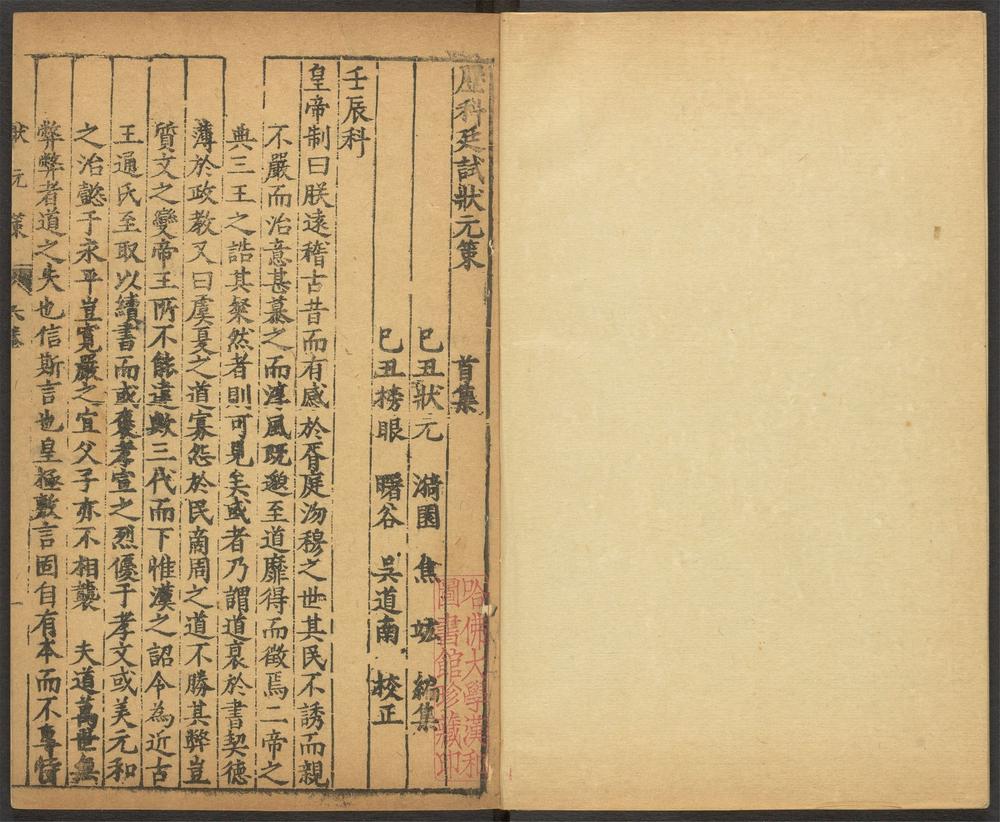 歷科廷試狀元策　首集
己丑狀元　漪園　焦竑　編集
己丑榜眼　曙谷　吳道南　校正
壬辰科
皇帝制曰朕遠稽古昔而有感於胥庭沕穆之世其民不誘而親
不嚴而治意甚慕之而淳風旣邈至道靡得而徵焉二帝之
典三王之誥其粲然者則可見矣或者乃謂道裒於書契德
薄於政教又曰虞夏之道寡怨於民啇周之道不勝其弊豈
質文之變帝王所不能違歟三代而下惟漢之詔令為近古
王通氏至取以續書而或褒孝宣之烈優于孝文或美元和
之治懿于永平豈寬嚴之宜父子亦不相襲　夫道萬世無
弊弊者道之失也信斯言也皇極敷言固自有本而不專恃
狀元策　首卷　一
哈佛大學漢和
圖書館珍藏印